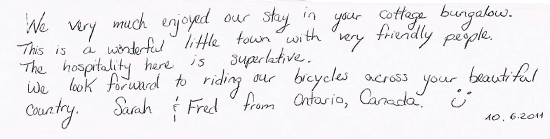 We very much enjoyed our stay in your cottage bungalow.
This is a wonderful little town with very friendly people.
The hospitality here is superlative.
We look forward to riding our bicycles across your beautiful
country. Sarah & Fred from Ontario, Canada. ☺
10.6.2011